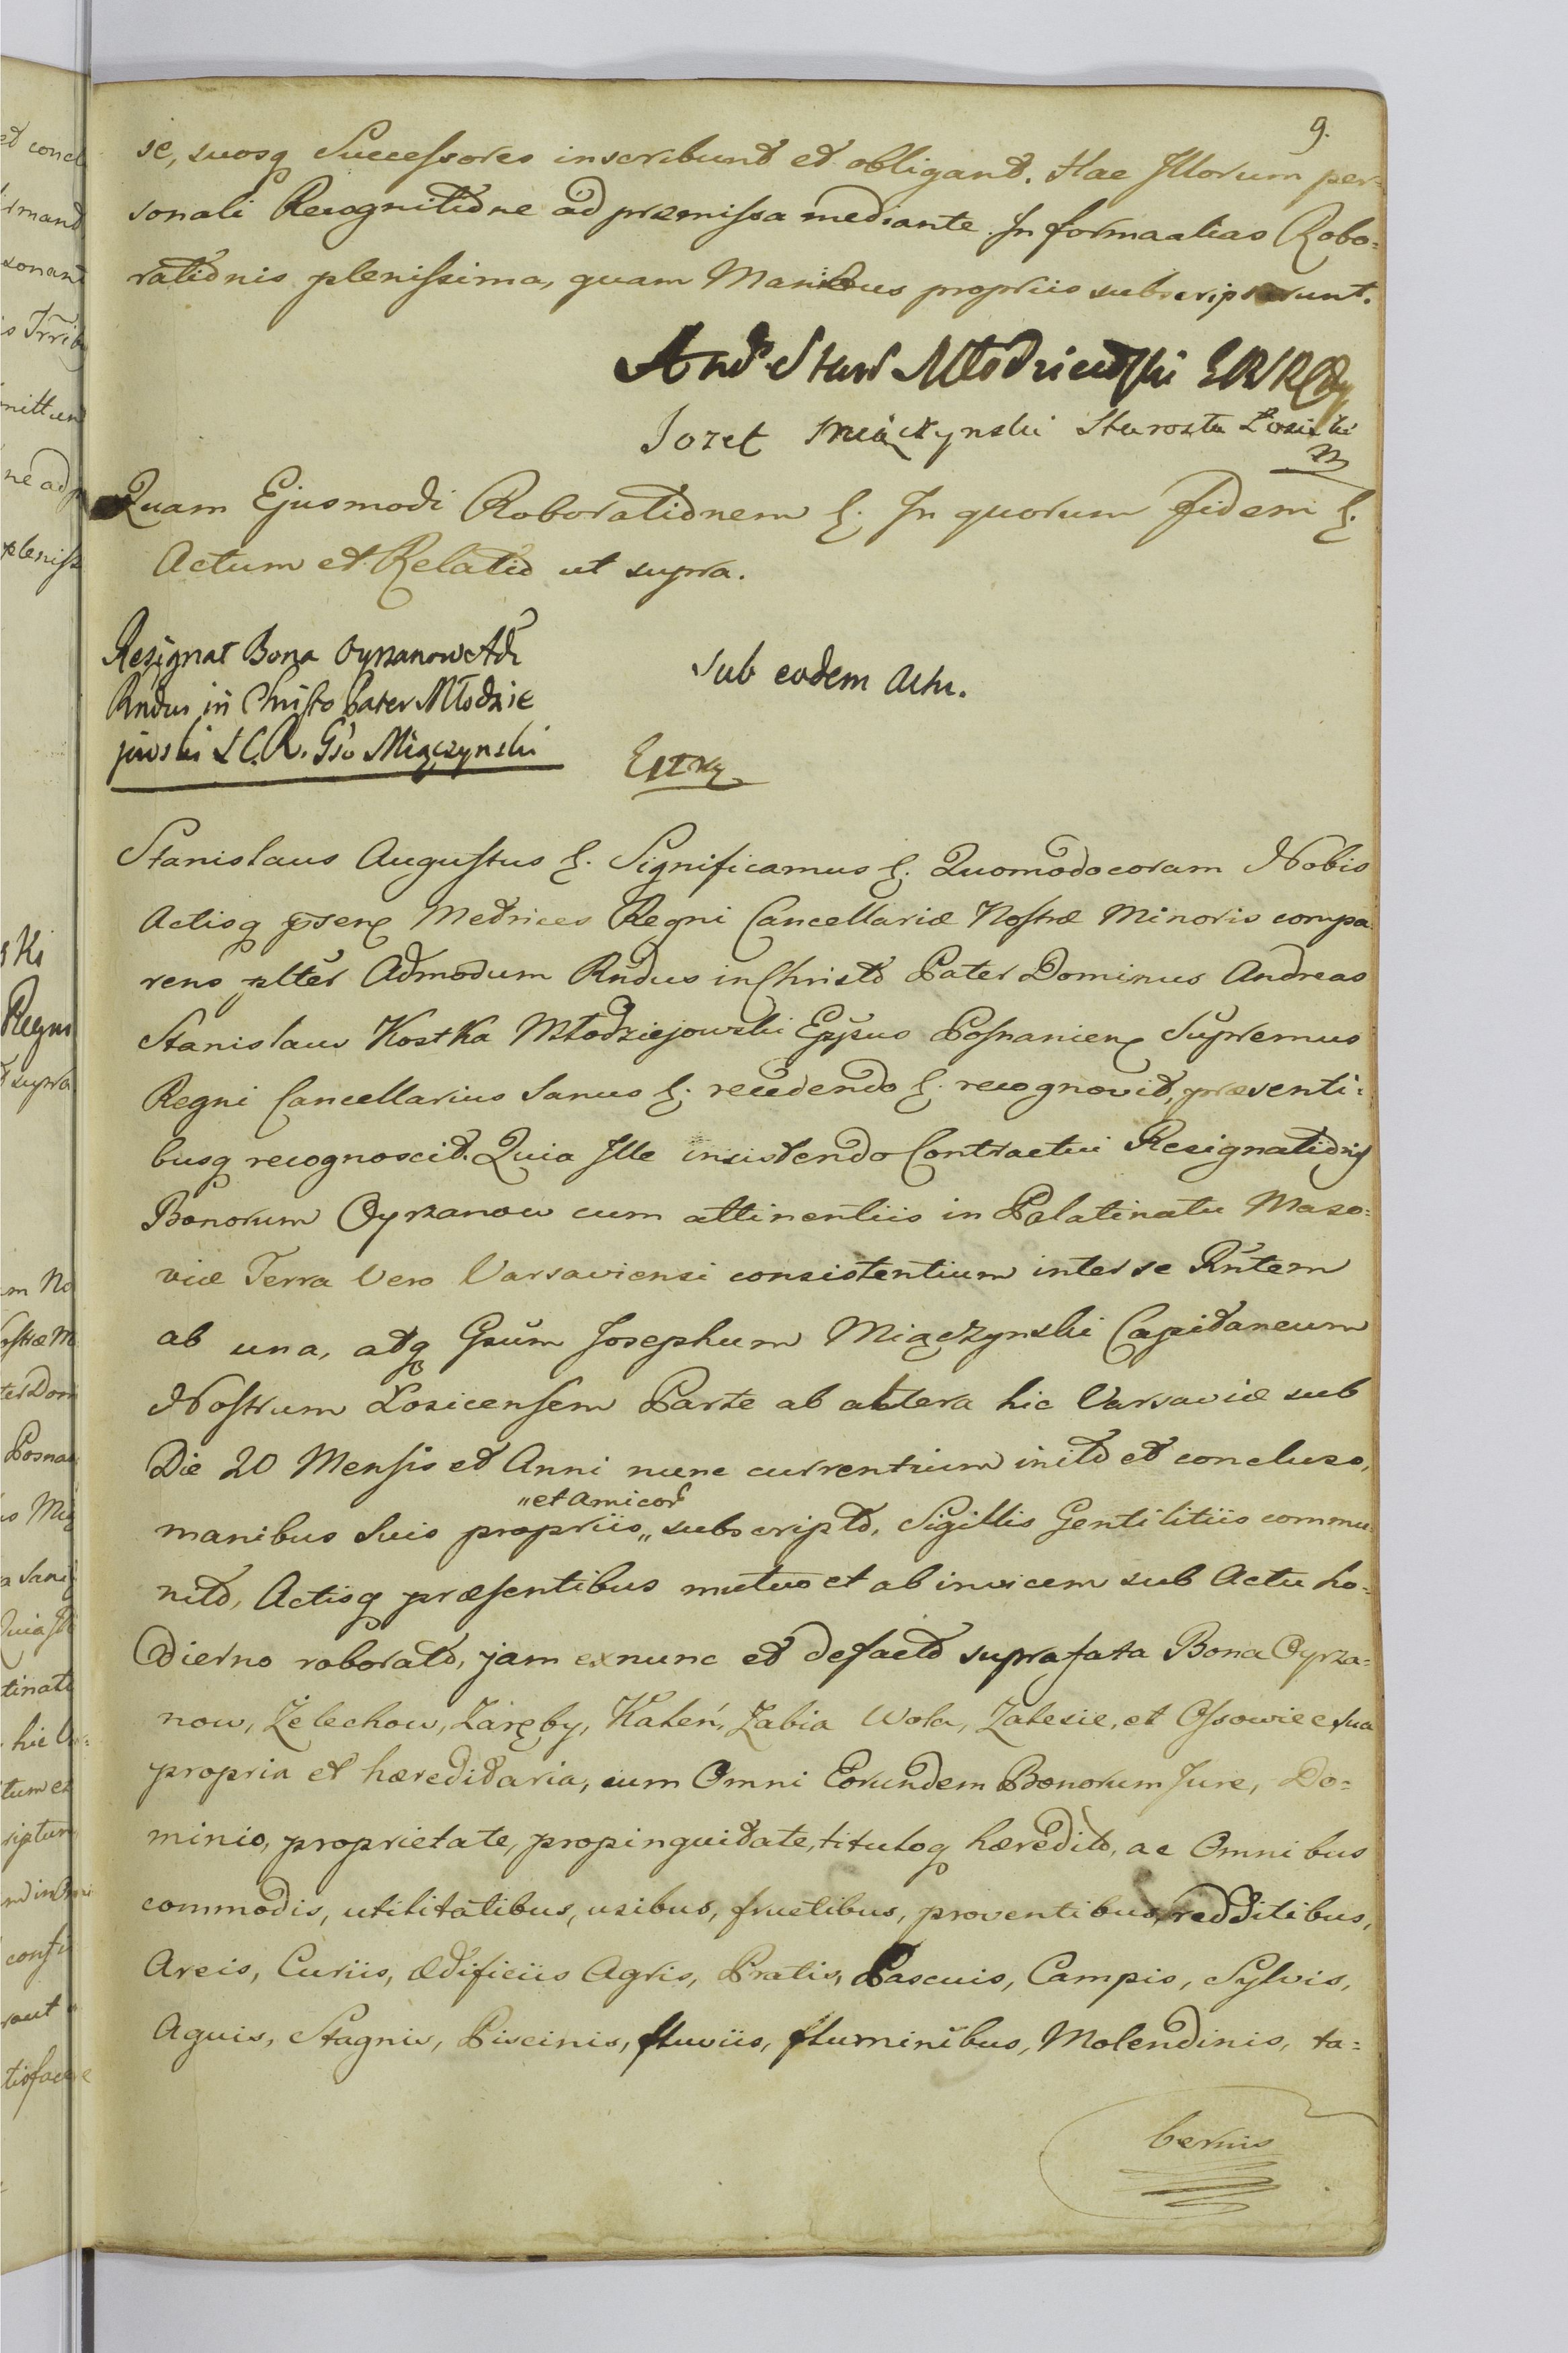 9.
se, suosq Successores inscribunt et obligant. Hac Illorum per=
sonali Recognitione ad præmissa mediante. In forma alias Robo=
rationis plenissima, quam Manibus propriis subscripserunt.
And Stan Młodzieiowski
Jozef Miączynski Starosta Łosicki
Quam Ejusmodi Roborationem &. In quorum fidem &.
Actum et Relatio ut supra.
Resignat Bona Oyrzanow Adr
Rndus in Christo Pater Młodzie
jowski S.C.R. Gso Miączynski
Sub eodem Actu.
Stanislaus Augustus &. Significamus &. Quomodo coram Nobis
Actisq psenq Metrices Regni Cancellariæ Nostræ Minoris compa=
rens plter Admodum Rndus in Christo Pater Dominus Andreas
Stanislaus Kostka Młodziejowski Eppus Posnanienq Supremus
Regni Cancellarius Sanus &. recedendo &. recognovit, præsenti=
busq recognoscit. Quia Ille insistendo Contractui Resignationis
Bonorum Oyrzanow cum attinentiis in Palatinatu Maso=
viæ Terra Vero Varsaviensi consistentium inter se Rntem
ab una, atq Gsum Josephum Miączynski Capitaneum
Nostrum Łosicensem Parte ab altera hic Varsaviæ sub
Die 20 Mensis et Anni nunc currentium inito et concluso,
"et Amicor
manibus Suis propriis,, subscripto, Sigillis Gentilitiis commu=
nito, Actisq præsentibus mutuo et ab invicem sub Actu ho=
dierno roborato, jam ex nunc et de facto suprafata Bona Oyrza=
now, Żelechow, Zaręby, Kaleń, Żabia Wola, Zalesie, et Ossowiec sua
propria et hæreditaria, cum Omni Eorundem Bonorum Jure, Do=
minio, proprietate, propinguitate, tituloq hæredito, ac Omnibus
commodis, utilitatibus, usibus, fructibus, proventibus, redditibus,
Areis, Curiis, Ædificiis Agris, Pratis, Pascuis, Campis, Sylvis,
Aquis, Stagnis, Piscinis, fluviis, fluminibus, Molendinis, ta=
bernis